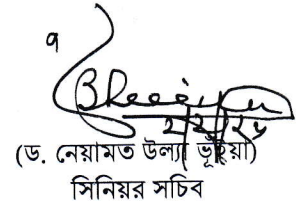 (ড. নেয়ামত উল্যা ভূঁইয়া)
সিনিয়র সচিব